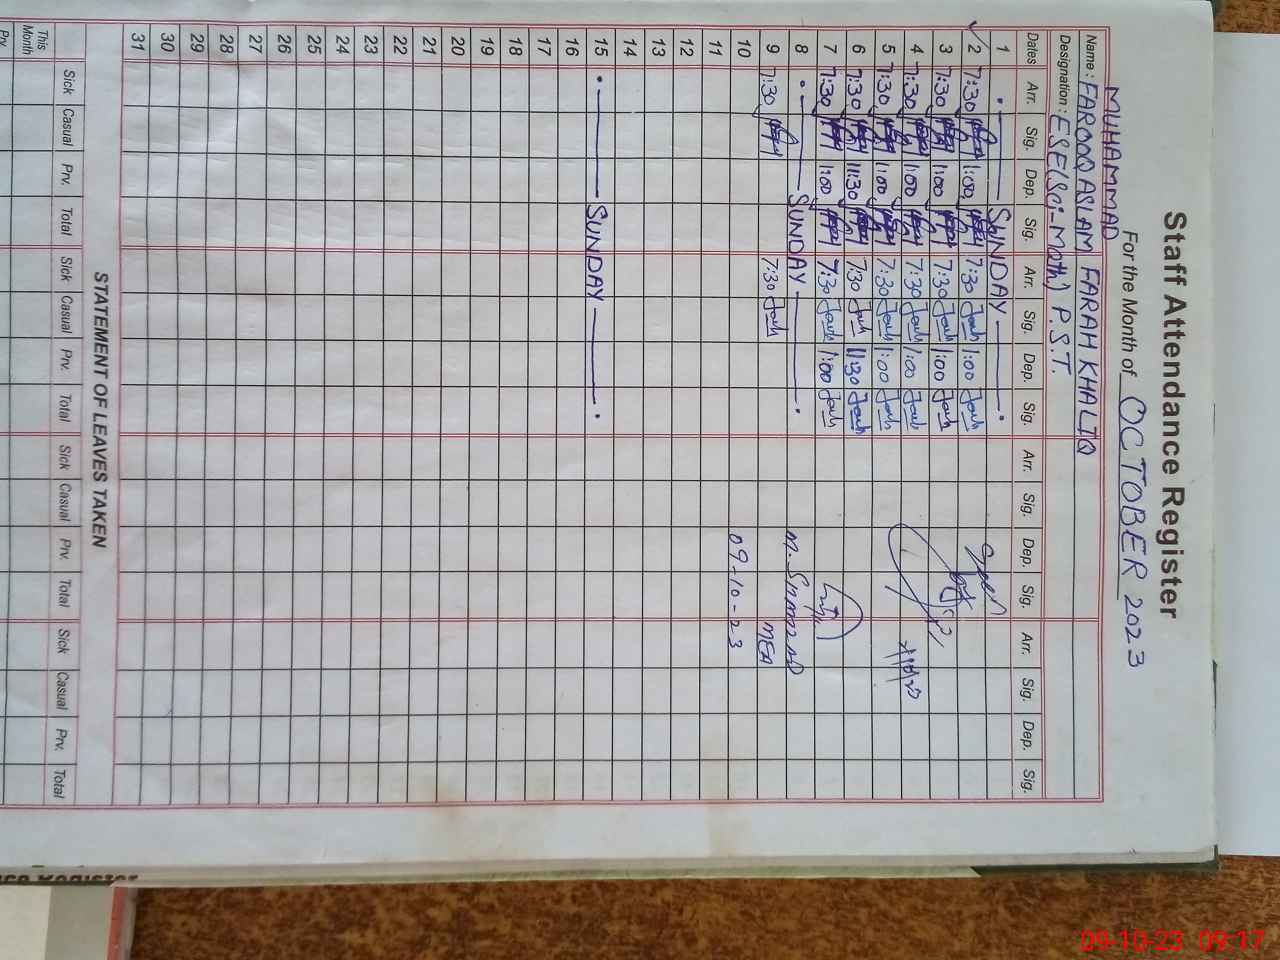 Staff Attendance Register
For the Month of OCTOBER 2023
MUHAMMAD
Name : FAROOQ ASLAM FARAH KHALIQ
Designation : ESE(Sci-Math) P.S.T.
Dates Arr. Sig. Dep. Sig. Arr. Sig. Dep. Sig. Arr. Sig. Dep. Sig. Arr. Sig. Dep. Sig.
1 SUNDAY
2 7:30 1:00 7:30 1:00
3 7:30 1:00 7:30 1:00
4 7:30 1:00 7:30 1:00
5 7:30 1:00 7:30 1:00
6 7:30 11:30 7:30 11:30
7 7:30 1:00 7:30 1:00
8 SUNDAY
9 7:30 7:30 MEA
10 09-10-23
11
12
13
14
15 SUNDAY
16
17
18
19
20
21
22
23
24
25
26
27
28
29
30
31
STATEMENT OF LEAVES TAKEN
Sick Casual Prv. Total Sick Casual Prv. Total Sick Casual Prv. Total Sick Casual Prv. Total
This Month
Prv.
09-10-23 09:17